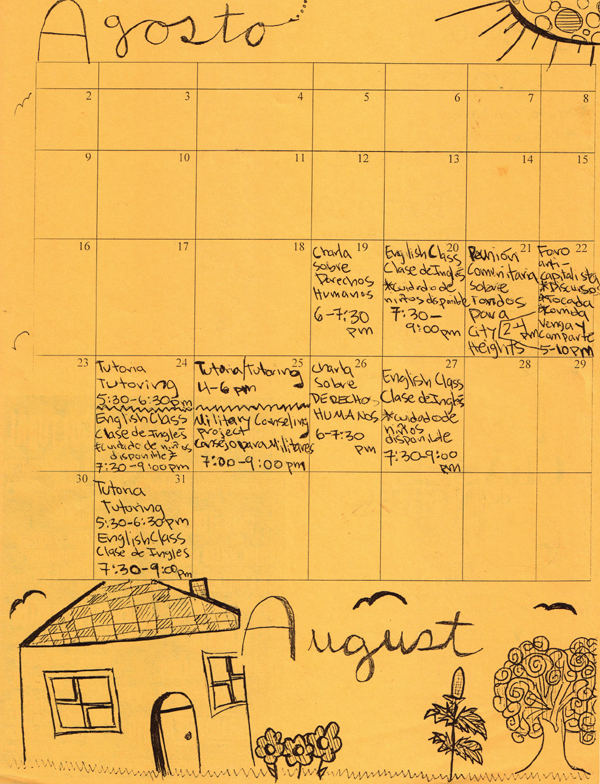 Agosto
2
3
4
5
6
7
8
9
10
11
12
13
14
15
16
17
18
19
Charla
sobre
Derechos
Humanos
6-7:30
pm
20
English Class
Clase de Inglés
*cuidado de
niños disponible
7:30-
9:00pm
21
Reunión
Comunitaria
sobre
Fondos
para
City
Heights
2-4
pm
22
Foro
anti-
capitalista
*Discursos
*Tocada
*Comida
Venga y
Comparte
5-10pm
23
24
Tutoria
Tutoring
5:30-6:30pm
English Class
Clase de Ingles
*cuidado de niños
disponible*
7:30-9:00pm
25
Tutoria/Tutoring
4-6pm
Military Counseling
project
Consejo para Militares
7:00-9:00pm
26
charla
sobre
DERECHOS
HUMANOS
6-7:30
pm
27
English Class
Clase de Inglés
*cuidado de
niños
disponible
7:30-9:00
pm
28
29
30
31
Tutoria
Tutoring
5:30-6:30pm
English Class
Clase de Ingles
7:30-9:00pm
August